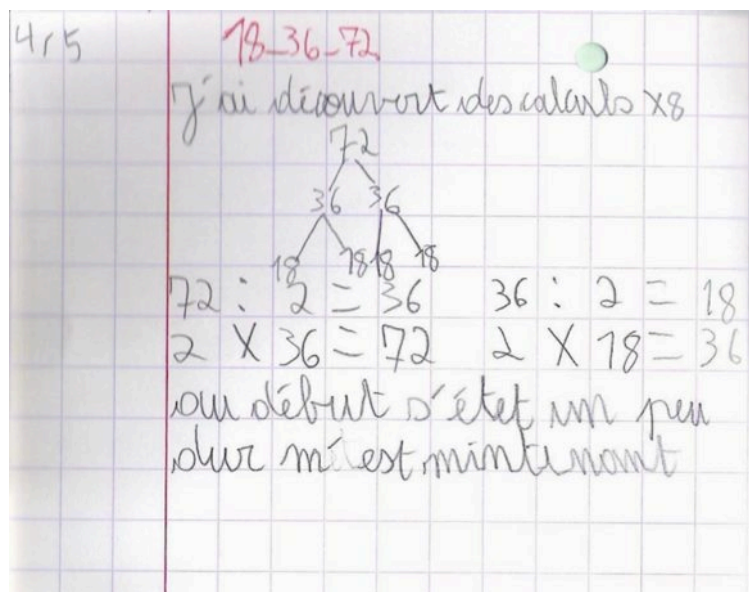 4/5
18-36-72
J'ai découvert des calculs ×8
72
36 36
18 18 18 18
72 : 2 = 36 36 : 2 = 18
2 × 36 = 72 2 × 18 = 36
au début s'étet un peu
dur m'est mintenant